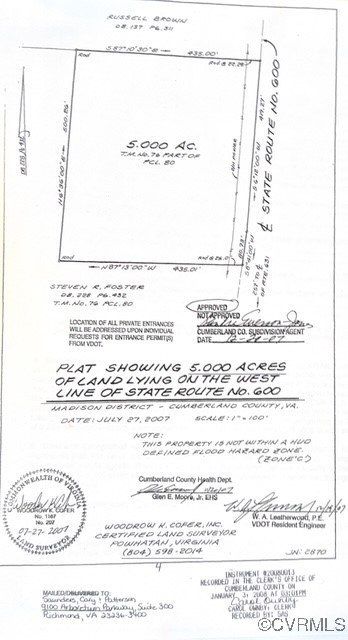 RUSSELL BROWN
DB. 137 PG. 311
S 87°10'30" E 435.00'
Rod
Rod @ 22.29'
5.000 AC.
T.M. No. 76 PART OF
PCL. 80
500.26'
N 6°35'00" E
417.27'
S 6°12'00" W
℄ STATE ROUTE No. 600
S 6°41'00" W
OF RTE. 631
Rod
N 87°13'00" W 435.01'
STEVEN R. FOSTER
DB. 228 PG. 432
T.M. No. 76 PCL. 80
APPROVED
NOT APPROVED
CUMBERLAND CO. SUBDIVISION AGENT
DATE 12-28-07
LOCATION OF ALL PRIVATE ENTRANCES
WILL BE ADDRESSED UPON INDIVIDUAL
REQUESTS FOR ENTRANCE PERMIT(S)
FROM VDOT.
PLAT SHOWING 5.000 ACRES
OF LAND LYING ON THE WEST
LINE OF STATE ROUTE No. 600
MADISON DISTRICT - CUMBERLAND COUNTY, VA.
DATE: JULY 27, 2007 SCALE: 1" = 100'
NOTE:
THIS PROPERTY IS NOT WITHIN A HUD
DEFINED FLOOD HAZARD ZONE.
(ZONE "C")
Cumberland County Health Dept.
Glen E. Moore, Jr. EHS
W. A. Leatherwood, P.E.
VDOT Resident Engineer
COMMONWEALTH OF VIRGINIA
WOODROW K. COFER
No. 1167
No. 207
07-27-2007
LAND SURVEYOR
WOODROW K. COFER, INC.
CERTIFIED LAND SURVEYOR
POWHATAN, VIRGINIA
(804) 598-2014
JN: C870
4
MAILED/DELIVERED TO:
Saunders, Cary & Patterson
9100 Arboretum Parkway, Suite 300
Richmond, VA 23236-3400
INSTRUMENT #200800113
RECORDED IN THE CLERK'S OFFICE OF
CUMBERLAND COUNTY ON
CAROL OWNBY, CLERK
RECORDED BY: SAS
©CVRMLS